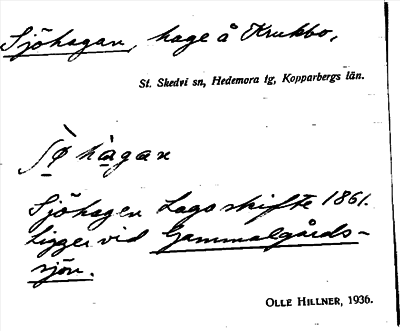 Sjöhagan, hage å Krukbo,
St. Skedvi sn, Hedemora tg, Kopparbergs län.
Sjöhagen Laga skifte 1861.
Ligger vid Gammalgårds-
sjön.
OLLE HILLNER, 1936.